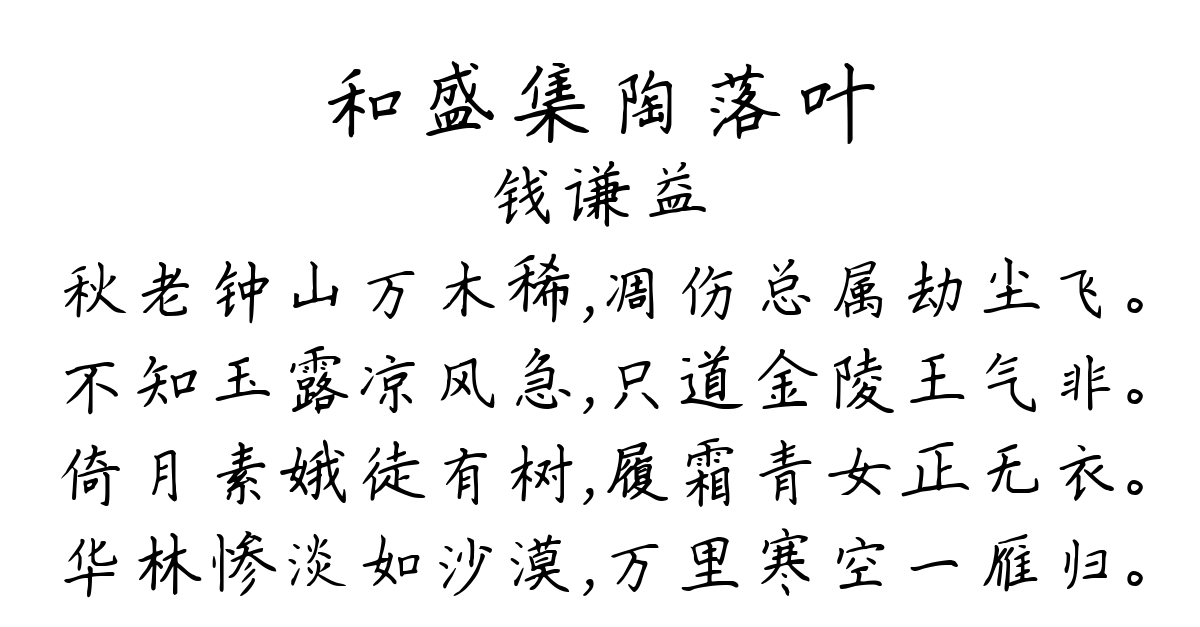 和盛集陶落叶
钱谦益
秋老钟山万木稀,凋伤总属劫尘飞。
不知玉露凉风急,只道金陵王气非。
倚月素娥徒有树,履霜青女正无衣。
华林惨淡如沙漠,万里寒空一雁归。